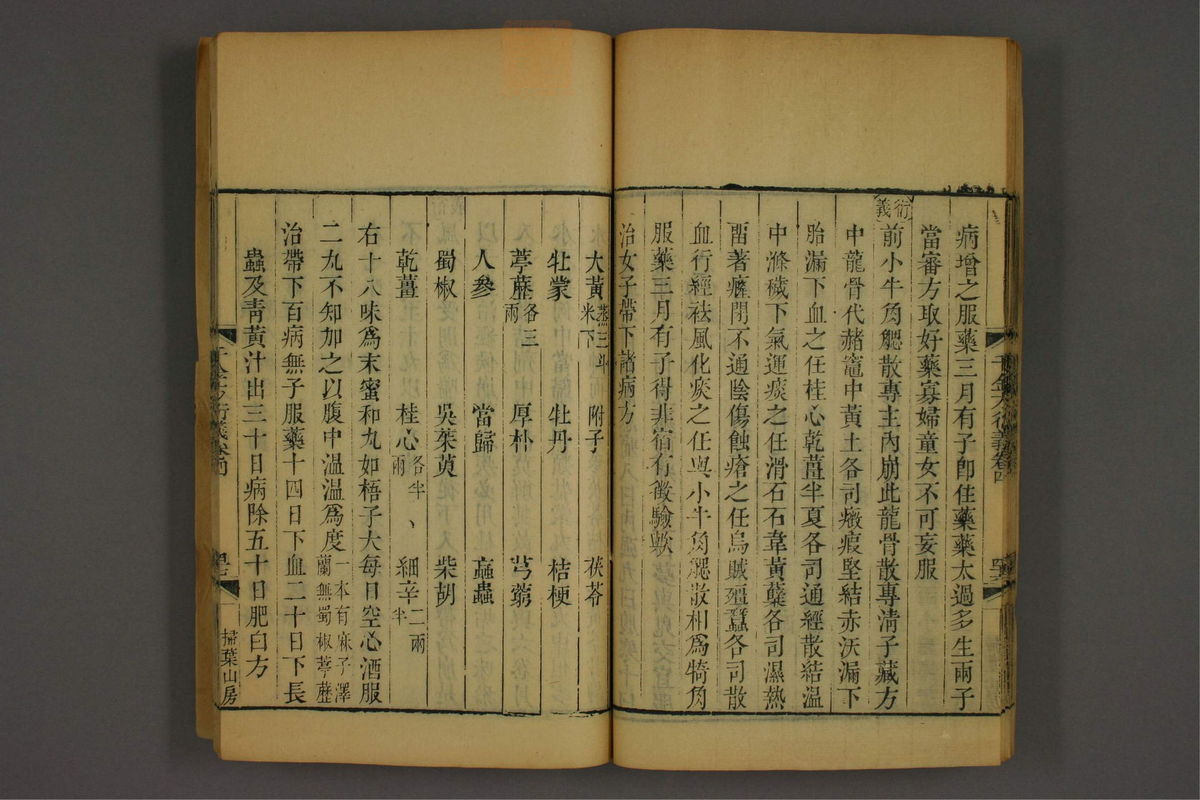 病增之服藥三月有子卽住藥藥太過多生兩子
當審方取好藥寡婦童女不可妄服
衍義
前小牛角䚡散專主內崩此龍骨散專淸子藏方
中龍骨代赭竈中黃土各司癥瘕堅結赤沃漏下
胎漏下血之任桂心乾薑半夏各司通經散結溫
中滌穢下氣運痰之任滑石石韋黃蘗各司濕熱
畱著癃閉不通陰傷蝕瘡之任烏賊殭蠶各司散
血行經袪風化痰之任與小牛角䚡散相爲犄角
服藥三月有子得非宿有徵驗歟
治女子帶下諸病方
大黃蒸三斗米下 附子 茯苓
牡蒙 牡丹 桔梗
葶藶各三兩 厚朴 芎藭
人參 當歸 䗪蟲
蜀椒 吳茱萸 柴胡
乾薑 桂心各半兩 細辛二兩半
右十八味爲末蜜和丸如梧子大每日空心酒服
二丸不知加之以腹中溫溫爲度一本有麻子澤蘭無蜀椒葶藶
治帶下百病無子服藥十四日下血二十日下長
蟲及靑黃汁出三十日病除五十日肥白方
千金方衍義卷四
掃葉山房